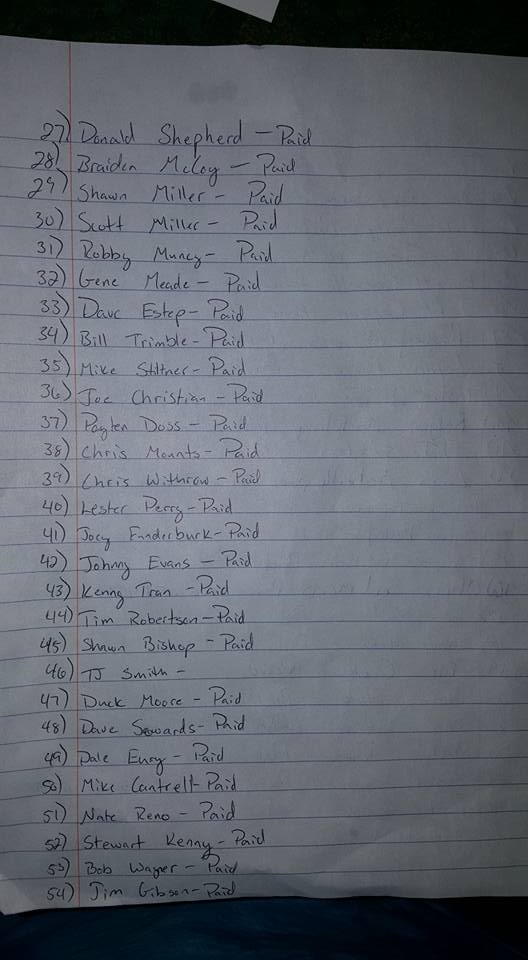 27) Donald Shepherd - Paid
28) Braiden McCoy - Paid
29) Shawn Miller - Paid
30) Scott Miller - Paid
31) Robby Muncy - Paid
32) Gene Meade - Paid
33) Dave Estep - Paid
34) Bill Trimble - Paid
35) Mike Stiltner - Paid
36) Joe Christian - Paid
37) Payten Doss - Paid
38) Chris Mounts - Paid
39) Chris Withrow - Paid
40) Lester Perry - Paid
41) Joey Funderburk - Paid
42) Johnny Evans - Paid
43) Kenny Tran - Paid
44) Tim Robertson - Paid
45) Shawn Bishop - Paid
46) TJ Smith -
47) Duck Moore - Paid
48) Dave Sowards - Paid
49) Dale Eury - Paid
50) Mike Cantrell - Paid
51) Nate Reno - Paid
52) Stewart Kenny - Paid
53) Bob Wagner - Paid
54) Jim Gibson - Paid